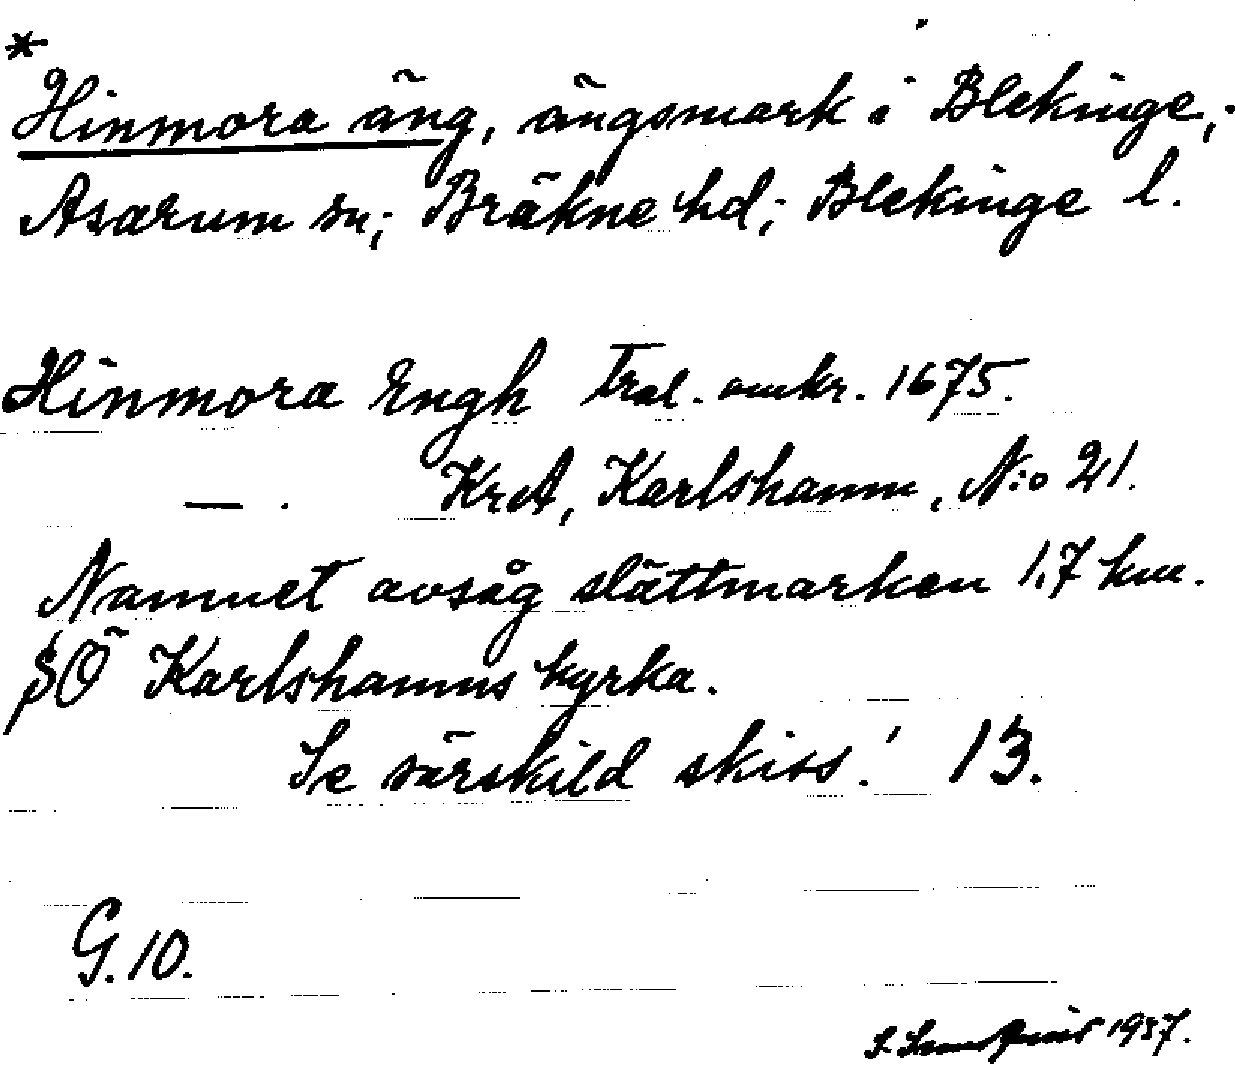 *
Hinmora äng, ängsmark i Blekinge,
Asarum sn; Bräkne hd; Blekinge l.
Hinmora Engh Tral. omkr. 1675.
— . KrA, Karlshamn, N:o 21.
Namnet avsåg slättmarken 1,7 km.
SÖ Karlshamns kyrka.
Se särskild skiss! 13.
G. 10.
1937.